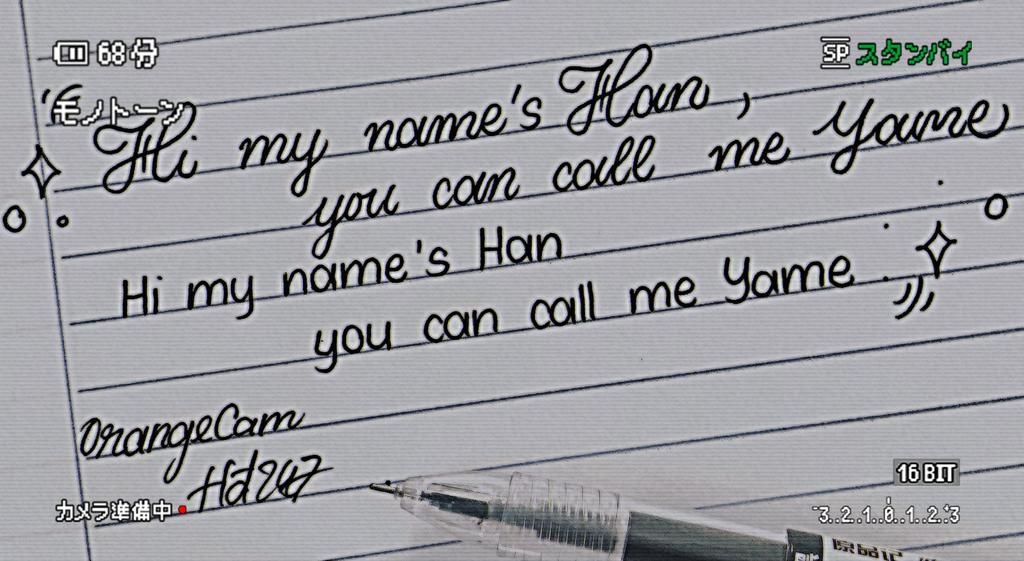 68分
SP スタンバイ
モノトーン
Hi my name's Han,
you can call me Yame
Hi my name's Han
you can call me Yame.
OrangeCam
Hd247
16BIT
カメラ準備中
-3..2.1..0..1..2.+3